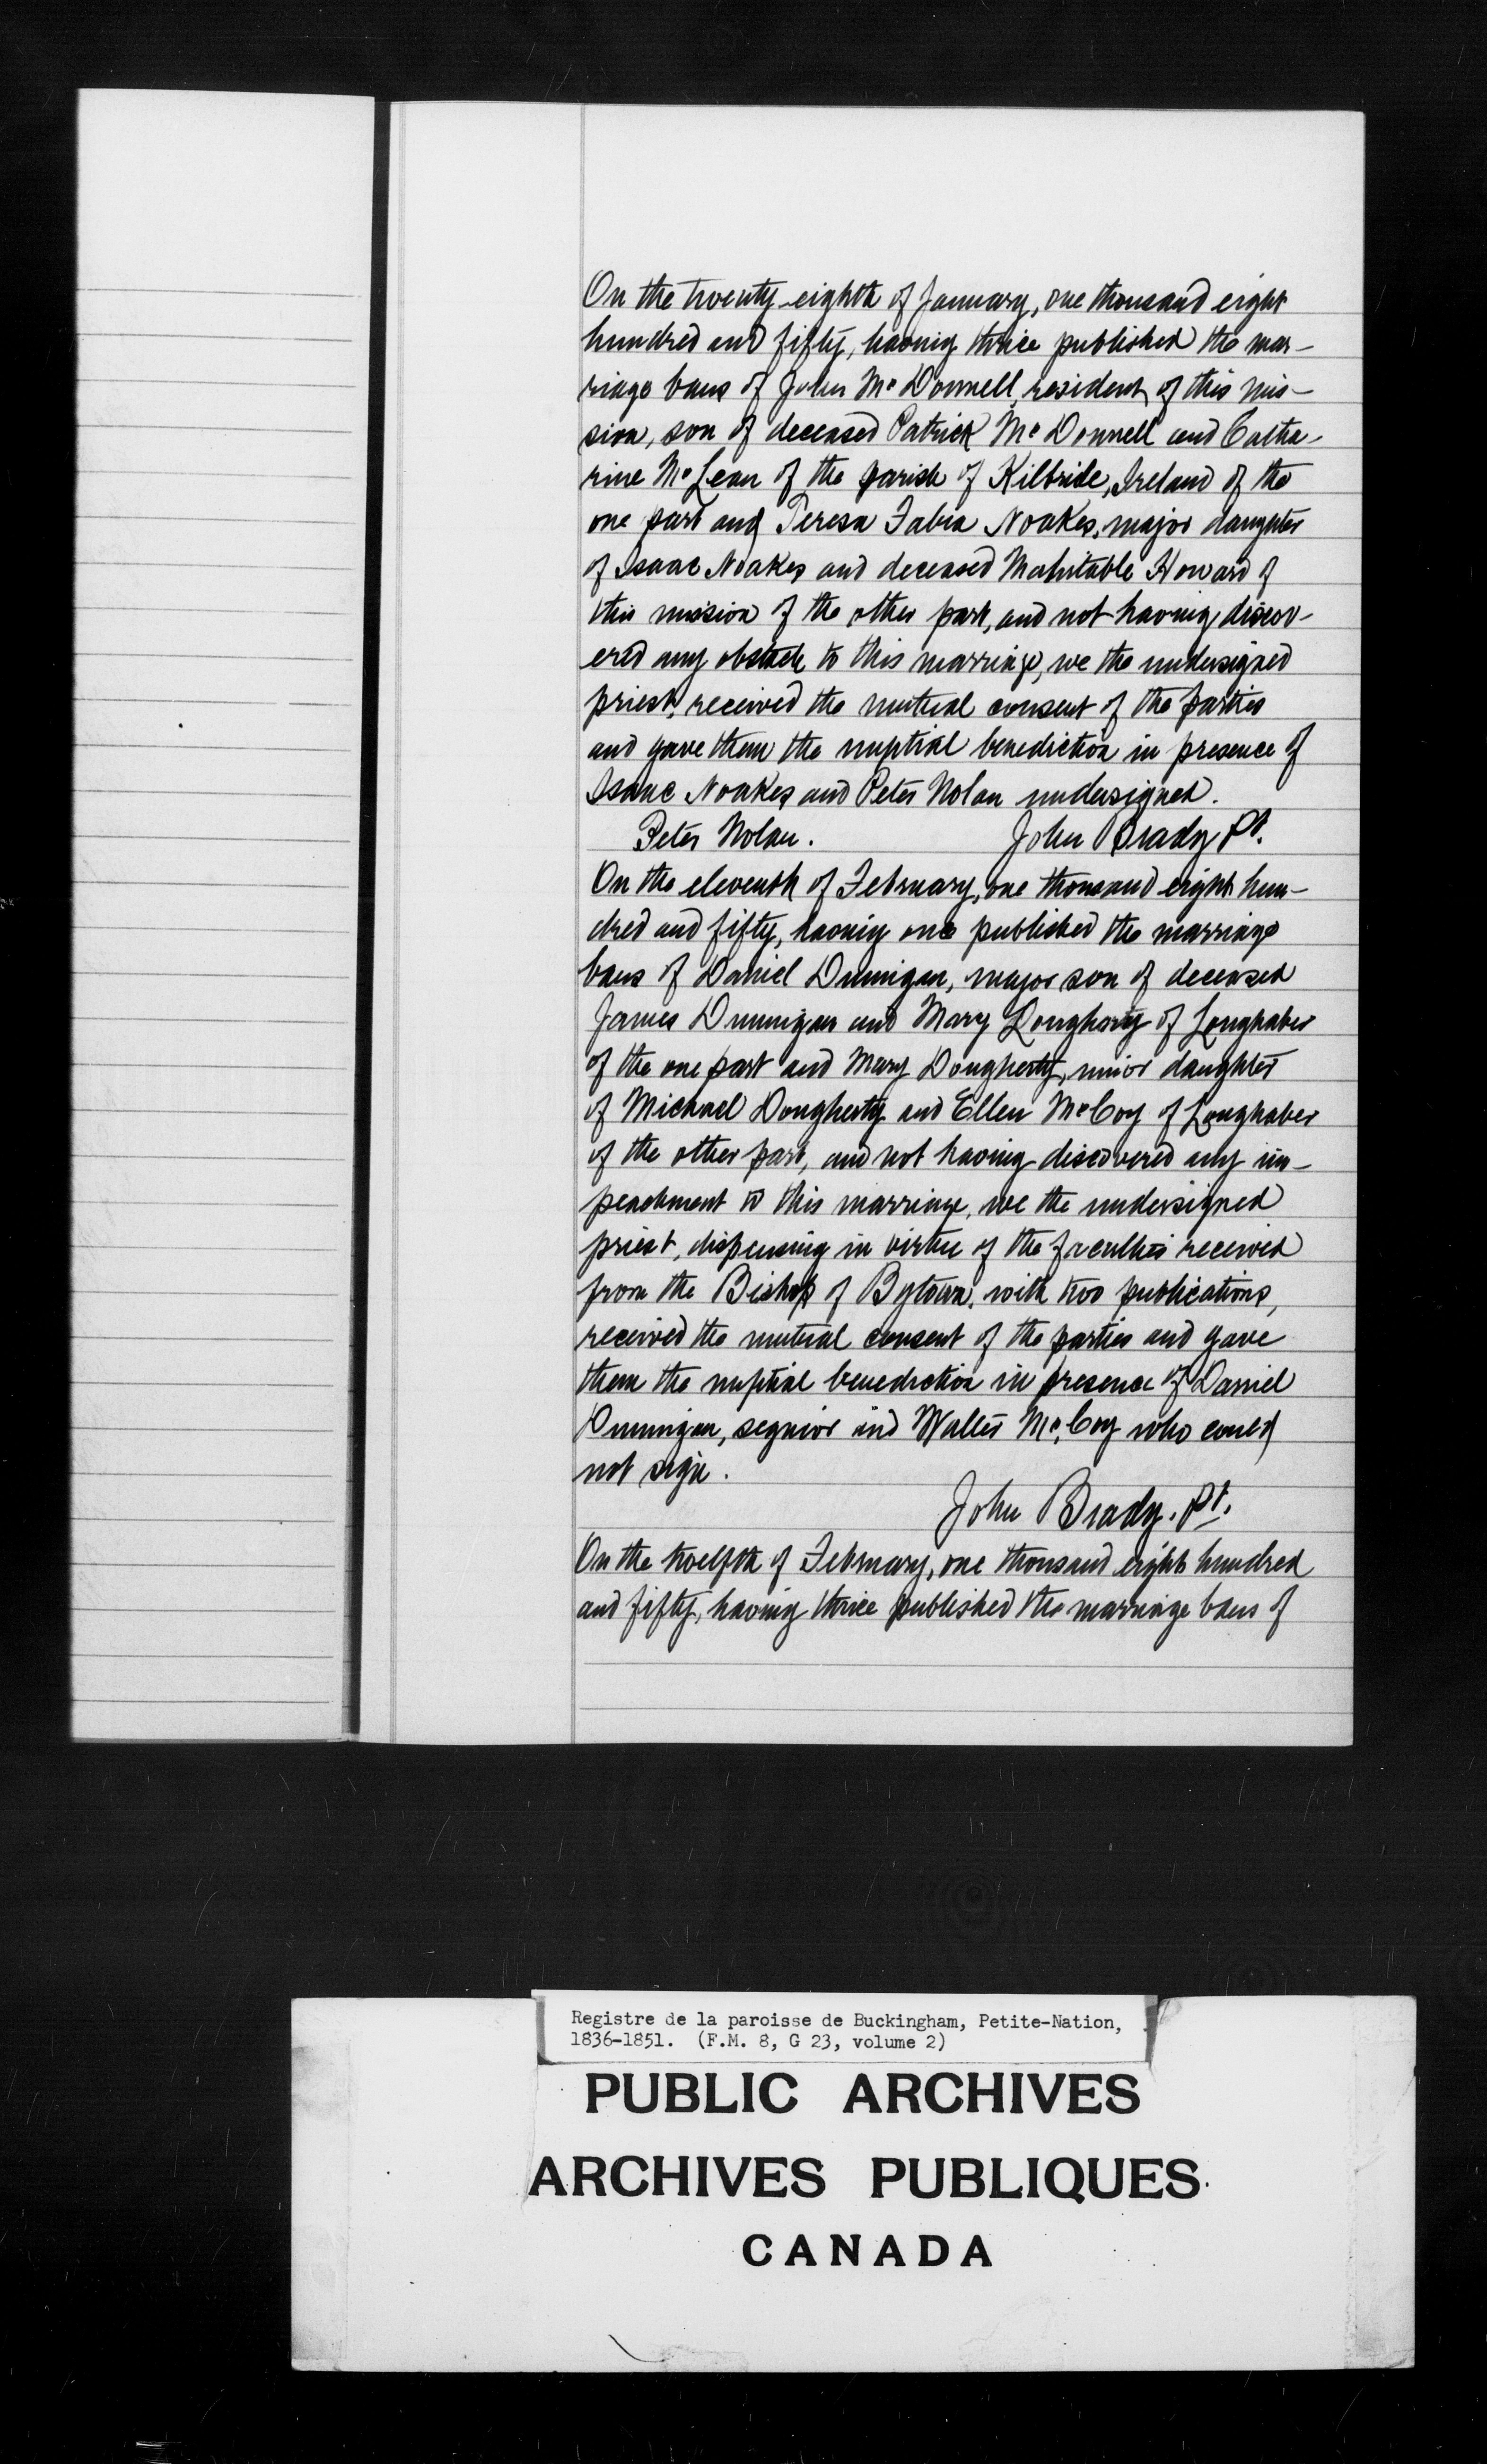 On the twenty-eighth of January, one thousand eight
hundred and fifty, having thrice published the mar-
riage bans of John McDonnell, resident of this mis-
sion, son of deceased Patrick McDonnell and Catha-
rine McLean of the parish of Kilbride, Ireland of the
one part and Teresa Fabia Noakes, major daughter
of Isaac Noakes and deceased Mahitable Howard of
this mission of the other part, and not having discov-
ered any obstacle to this marriage, we the undersigned
priest, received the mutual consent of the parties
and gave them the nuptial benediction in presence of
Isaac Noakes and Peter Nolan undersigned.
Peter Nolan. John Brady Pt.
On the eleventh of February, one thousand eight hun-
dred and fifty, having once published the marriage
bans of Daniel Dunnigan, major son of deceased
James Dunnigan and Mary Dougherty of Loughaber
of the one part and Mary Dougherty, minor daughter
of Michael Dougherty and Ellen McCoy of Loughaber
of the other part, and not having discovered any im-
peachment to this marriage, we the undersigned
priest, dispensing in virtue of the faculties received
from the Bishop of Bytown, with two publications,
received the mutual consent of the parties and gave
them the nuptial benediction in presence of Daniel
Dunnigan, segnior and Walter McCoy who could
not sign.
John Brady. Pt.
On the twelfth of February, one thousand eight hundred
and fifty, having thrice published the marriage bans of
Registre de la paroisse de Buckingham, Petite-Nation,
1836-1851. (F.M. 8, G 23, volume 2)
PUBLIC ARCHIVES
ARCHIVES PUBLIQUES
CANADA